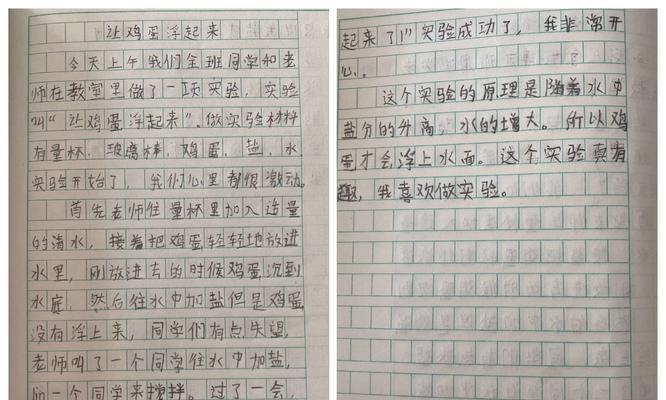 让鸡蛋浮起来
今天上午我们全班同学和老
师在教室里做了一项实验，实验
叫“让鸡蛋浮起来”。做实验材料
有量杯、玻璃棒、鸡蛋、盐、水
实验开始了，我们心里都很激动。
首先老师往量杯里加入适量
的清水，接着把鸡蛋轻轻地放进
水里，刚放进去的时候鸡蛋沉到
水底，然后往水中加盐但是鸡蛋
没有浮上来，同学们有点失望，
老师叫了一个同学往水中加盐，
lin一个同学来搅拌。过了一会，
起来了！”实验成功了，我非常开
心。
这个实验的原理是随着水中
盐分的升高，水的增大。所以鸡
蛋才会浮上水面。这个实验真有
趣，我喜欢做实验。